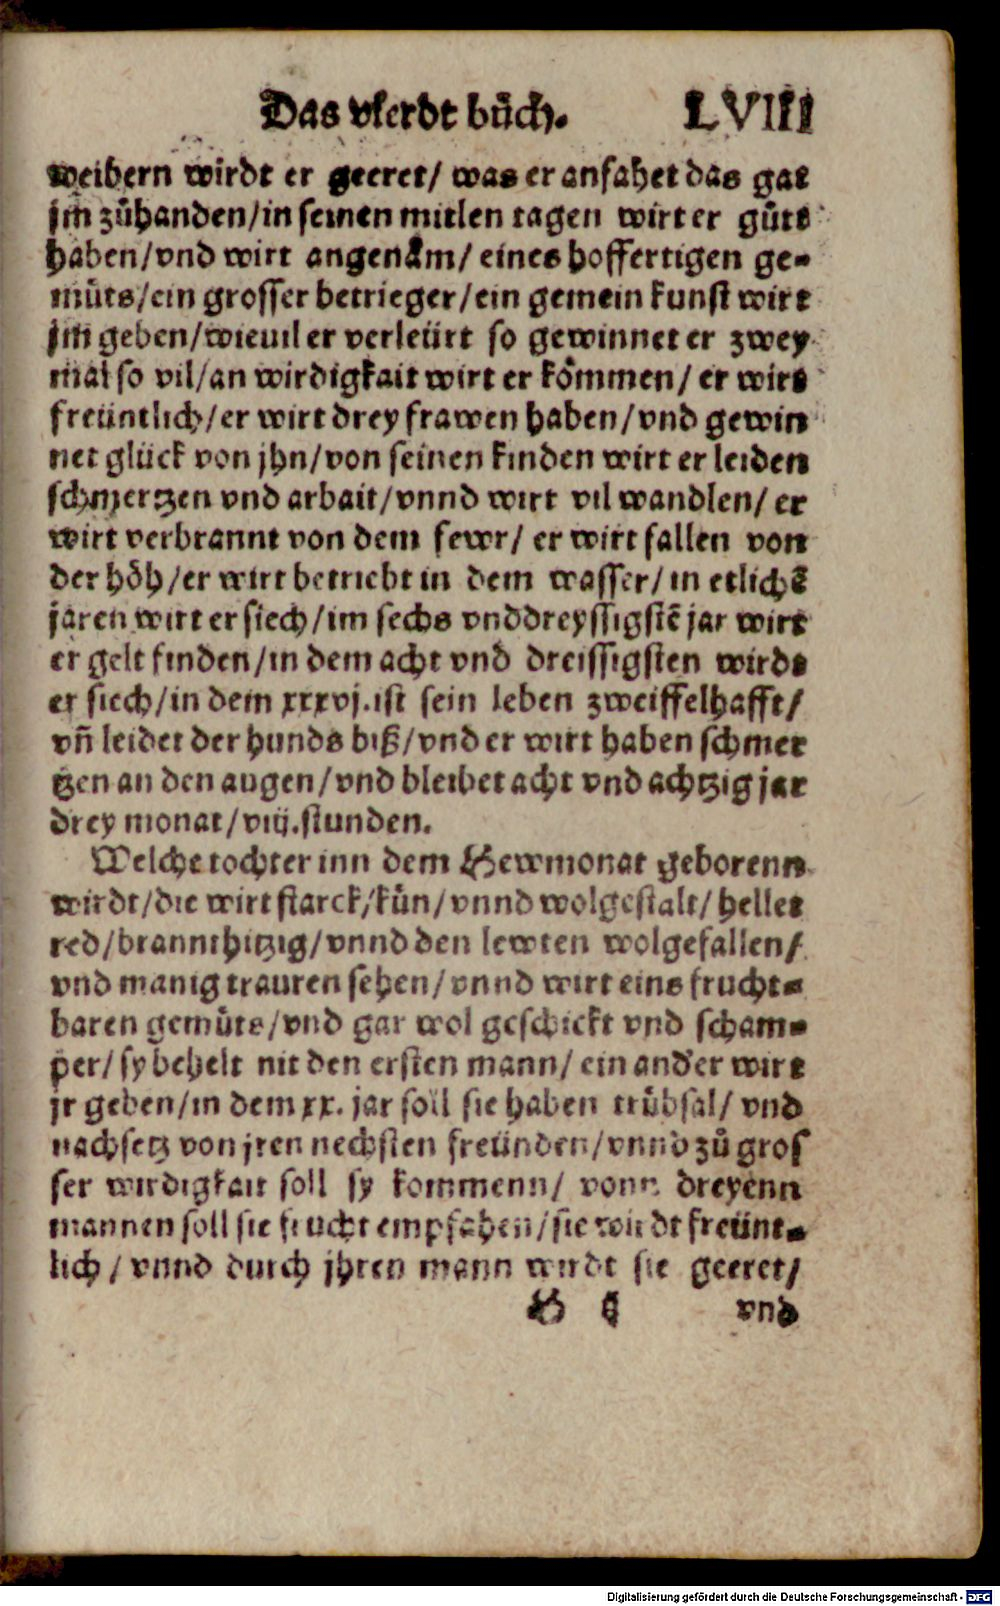 Das vierdt bůch. LVIII
weibern wirdt er geeret/ was er anfahet das gat
jm zůhanden/in seinen mitlen tagen wirt er gůts
haben/vnd wirt angenäm/ eines hoffertigen ge-
můts/ein grosser betrieger/ein gemein kunst wirt
jm geben/wieuil er verleürt so gewinnet er zwey
mal so vil/an wirdigkait wirt er kömmen/ er wirt
freüntlich/er wirt drey frawen haben/vnd gewin
net glück von jhn/von seinen kinden wirt er leiden
schmertzen vnd arbait/vnnd wirt vil wandlen/ er
wirt verbrannt von dem fewr/ er wirt fallen von
der höh/er wirt betriebt in dem wasser/in etlichē
jaren wirt er siech/im sechs vnddreyssigstē jar wirt
er gelt finden/in dem acht vnd dreissigsten wirdt
er siech/in dem xxxvj.ist sein leben zweiffelhafft/
vñ leidet der hunds biß/vnd er wirt haben schmer
tzen an den augen/vnd bleibet acht vnd achtzig jar
drey monat/viij.stunden.
Welche tochter inn dem Hewmonat geborenn
wirdt/die wirt starck/kün/vnnd wolgestalt/heller
red/brannthitzig/vnnd den lewten wolgefallen/
vnd manig trauren sehen/vnnd wirt eins frucht-
baren gemůts/vnd gar wol geschickt vnd scham-
per/sy behelt nit den ersten mann/ ein ander wirt
jr geben/in dem xx. jar soll sie haben trübsal/ vnd
nachsetz von jren nechsten freünden/vnnd zů gros
ser wirdigkait soll sy kommenn/ vonn dreyenn
mannen soll sie frucht empfahen/sie wirdt freünt-
lich/vnnd durch jhren mann wirdt sie geeret/
H ij vnd
Digitalisierung gefördert durch die Deutsche Forschungsgemeinschaft - DFG